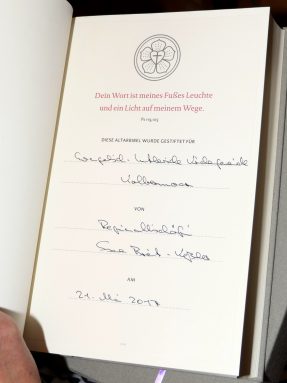 Dein Wort ist meines Fußes Leuchte
und ein Licht auf meinem Wege.
Ps 119,105
DIESE ALTARBIBEL WURDE GESTIFTET FÜR
Evangelisch-Lutherische
Kolbermoor
VON
Regionalbischöfin
Susanne Breit-Keßler
AM
21. Mai 2017